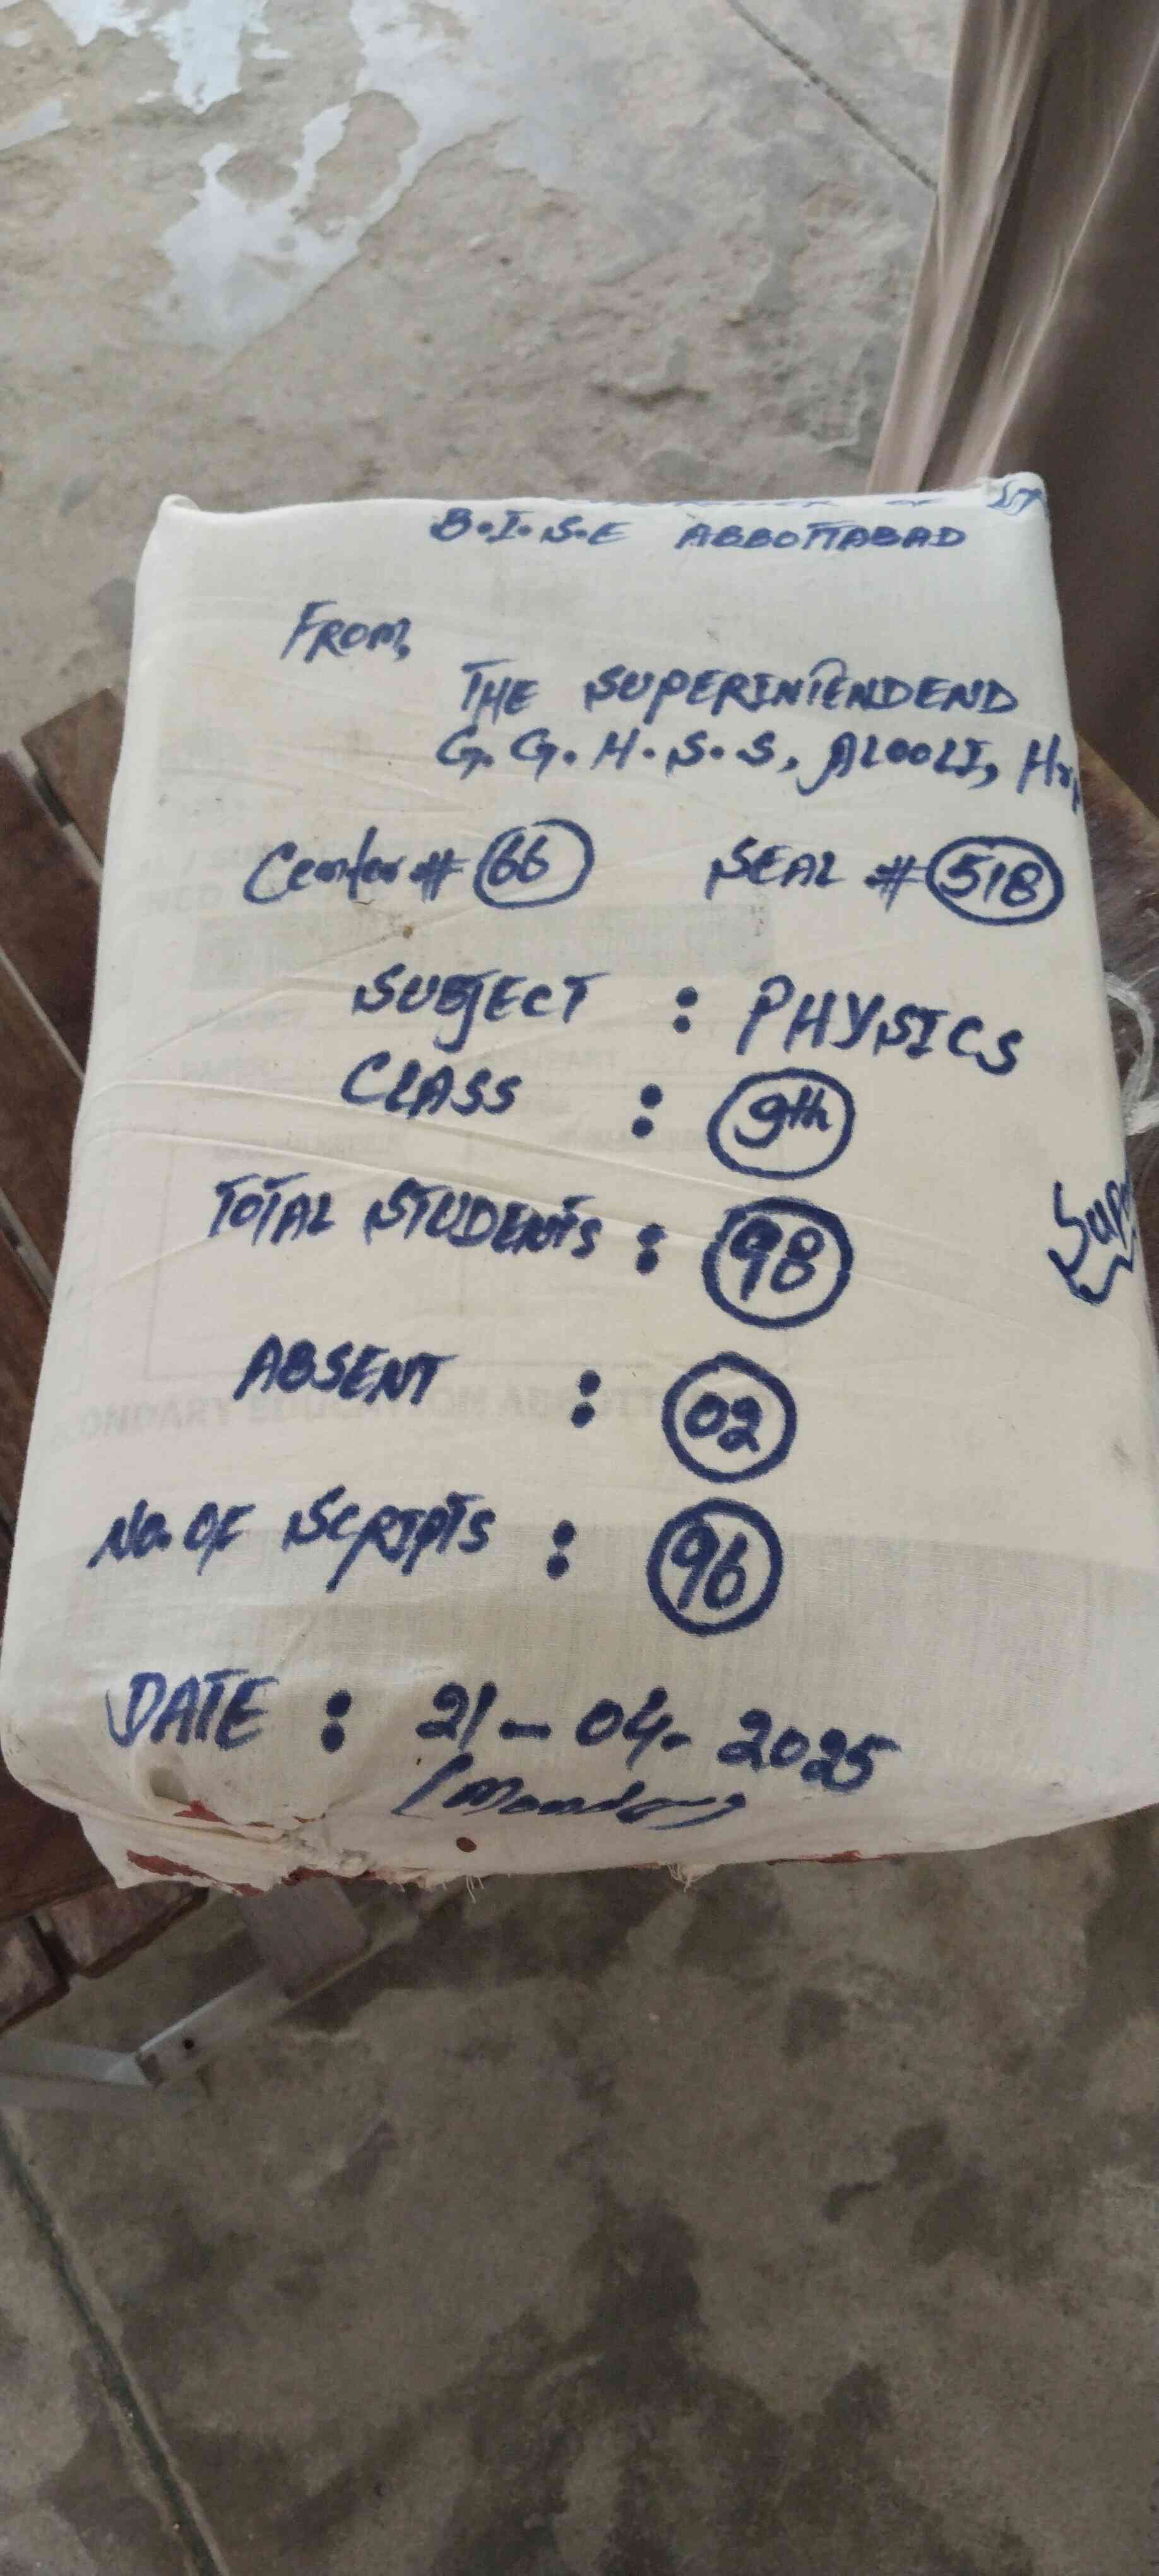 B.I.S.E ABBOTTABAD
FROM,
THE SUPERINTENDEND
G.G.H.S.S, ALOOLI,
Center # 66 SEAL # 518
SUBJECT : PHYSICS
CLASS : 9th
TOTAL STUDENTS : 98
ABSENT : 02
No. OF SCRIPTS : 96
DATE : 21-04-2025
(Monday)